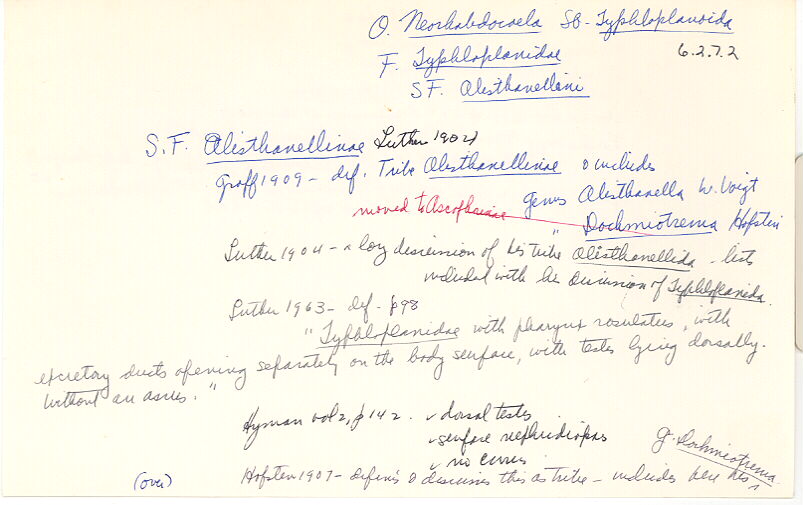 O. Neorhabdocoela SO-Typhloplanoida
F. Typhloplanidae 6.2.7.2
SF. Olisthanellini
S.F. Olisthanellinae Luther 1904
Graff 1909 - def. Tribe Olisthanellinae & includes
genus Olisthanella W. Voigt
moved to Ascophorinae " Dochmiotrema Hofsten
Luther 1904 - a long discussion of his tribe Olisthanellida - lists
included with his discussion of Typhloplanida.
Luther 1963 - def - p98
"Typhloplanidae with pharynx rosulatus, with
excretory ducts opening separately on the body surface, with testes lying dorsally.
Without an ascus."
Hyman vol 2, p 142. ✓ dorsal testes
✓ surface nephridiopores
✓ no cirrus
g. Dochmiotrema
(over) Hofsten 1907 - defines & discusses this as tribe - includes here his